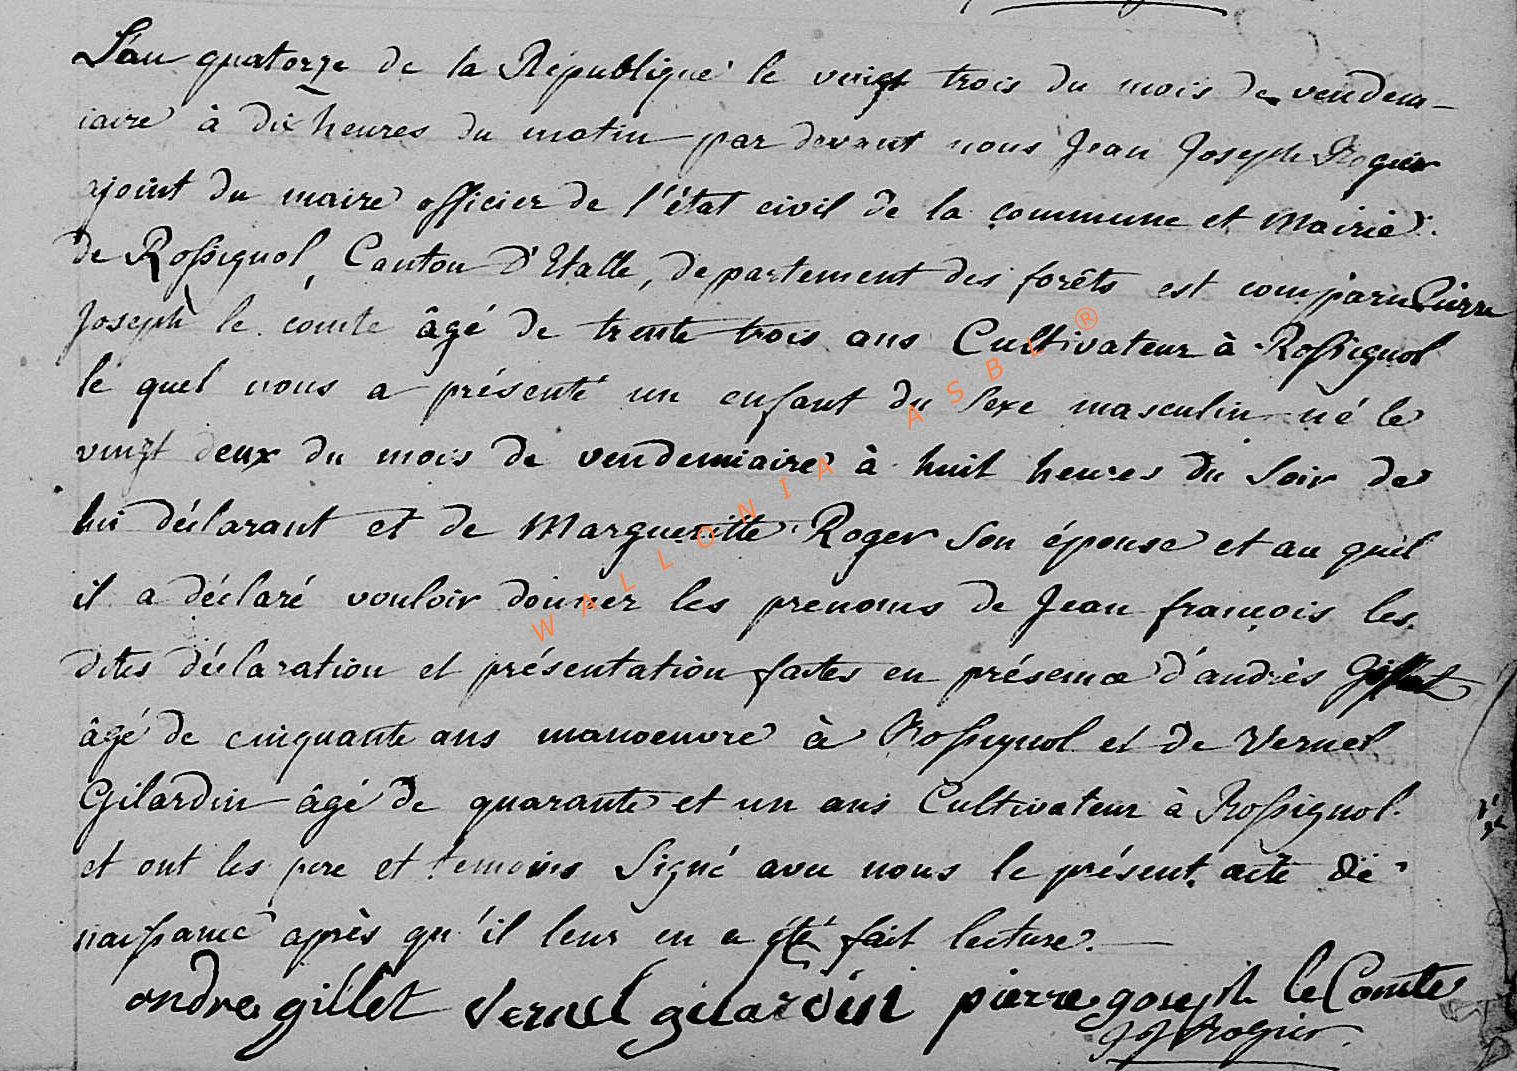 L'an quatorze de la République le vingt trois du mois de vendem-
iaire à dix heures du matin par devant nous Jean Joseph Rogier
ajoint du maire officier de l'état civil de la commune et Mairie
de Rossignol, Canton D'Etalle, departement des forêts est comparu Pierre
Joseph le comte âgé de trente trois ans Cultivateur à Rossignol
le quel nous a présenté un enfant du sexe masculin né le
vingt deux du mois de vendemiaire à huit heures du soir de
lui déclarant et de Margueritte Roger son épouse et au quel
il a déclaré vouloir donner les prenoms de Jean françois les
dites déclaration et présentation faites en présence d'andrés Gillet
âgé de cinquante ans manoeuvre à Rossignol et de Vernel
Gilardin âgé de quarante et un ans Cultivateur à Rossignol.
et ont les pere et temoins signé avec nous le présent acte de
naissance après qu'il leur en a été fait lecture.
andre gillet Vernel gilardin pierre joseph le Comte
J J Rogier
WALLONIA ASBL ®